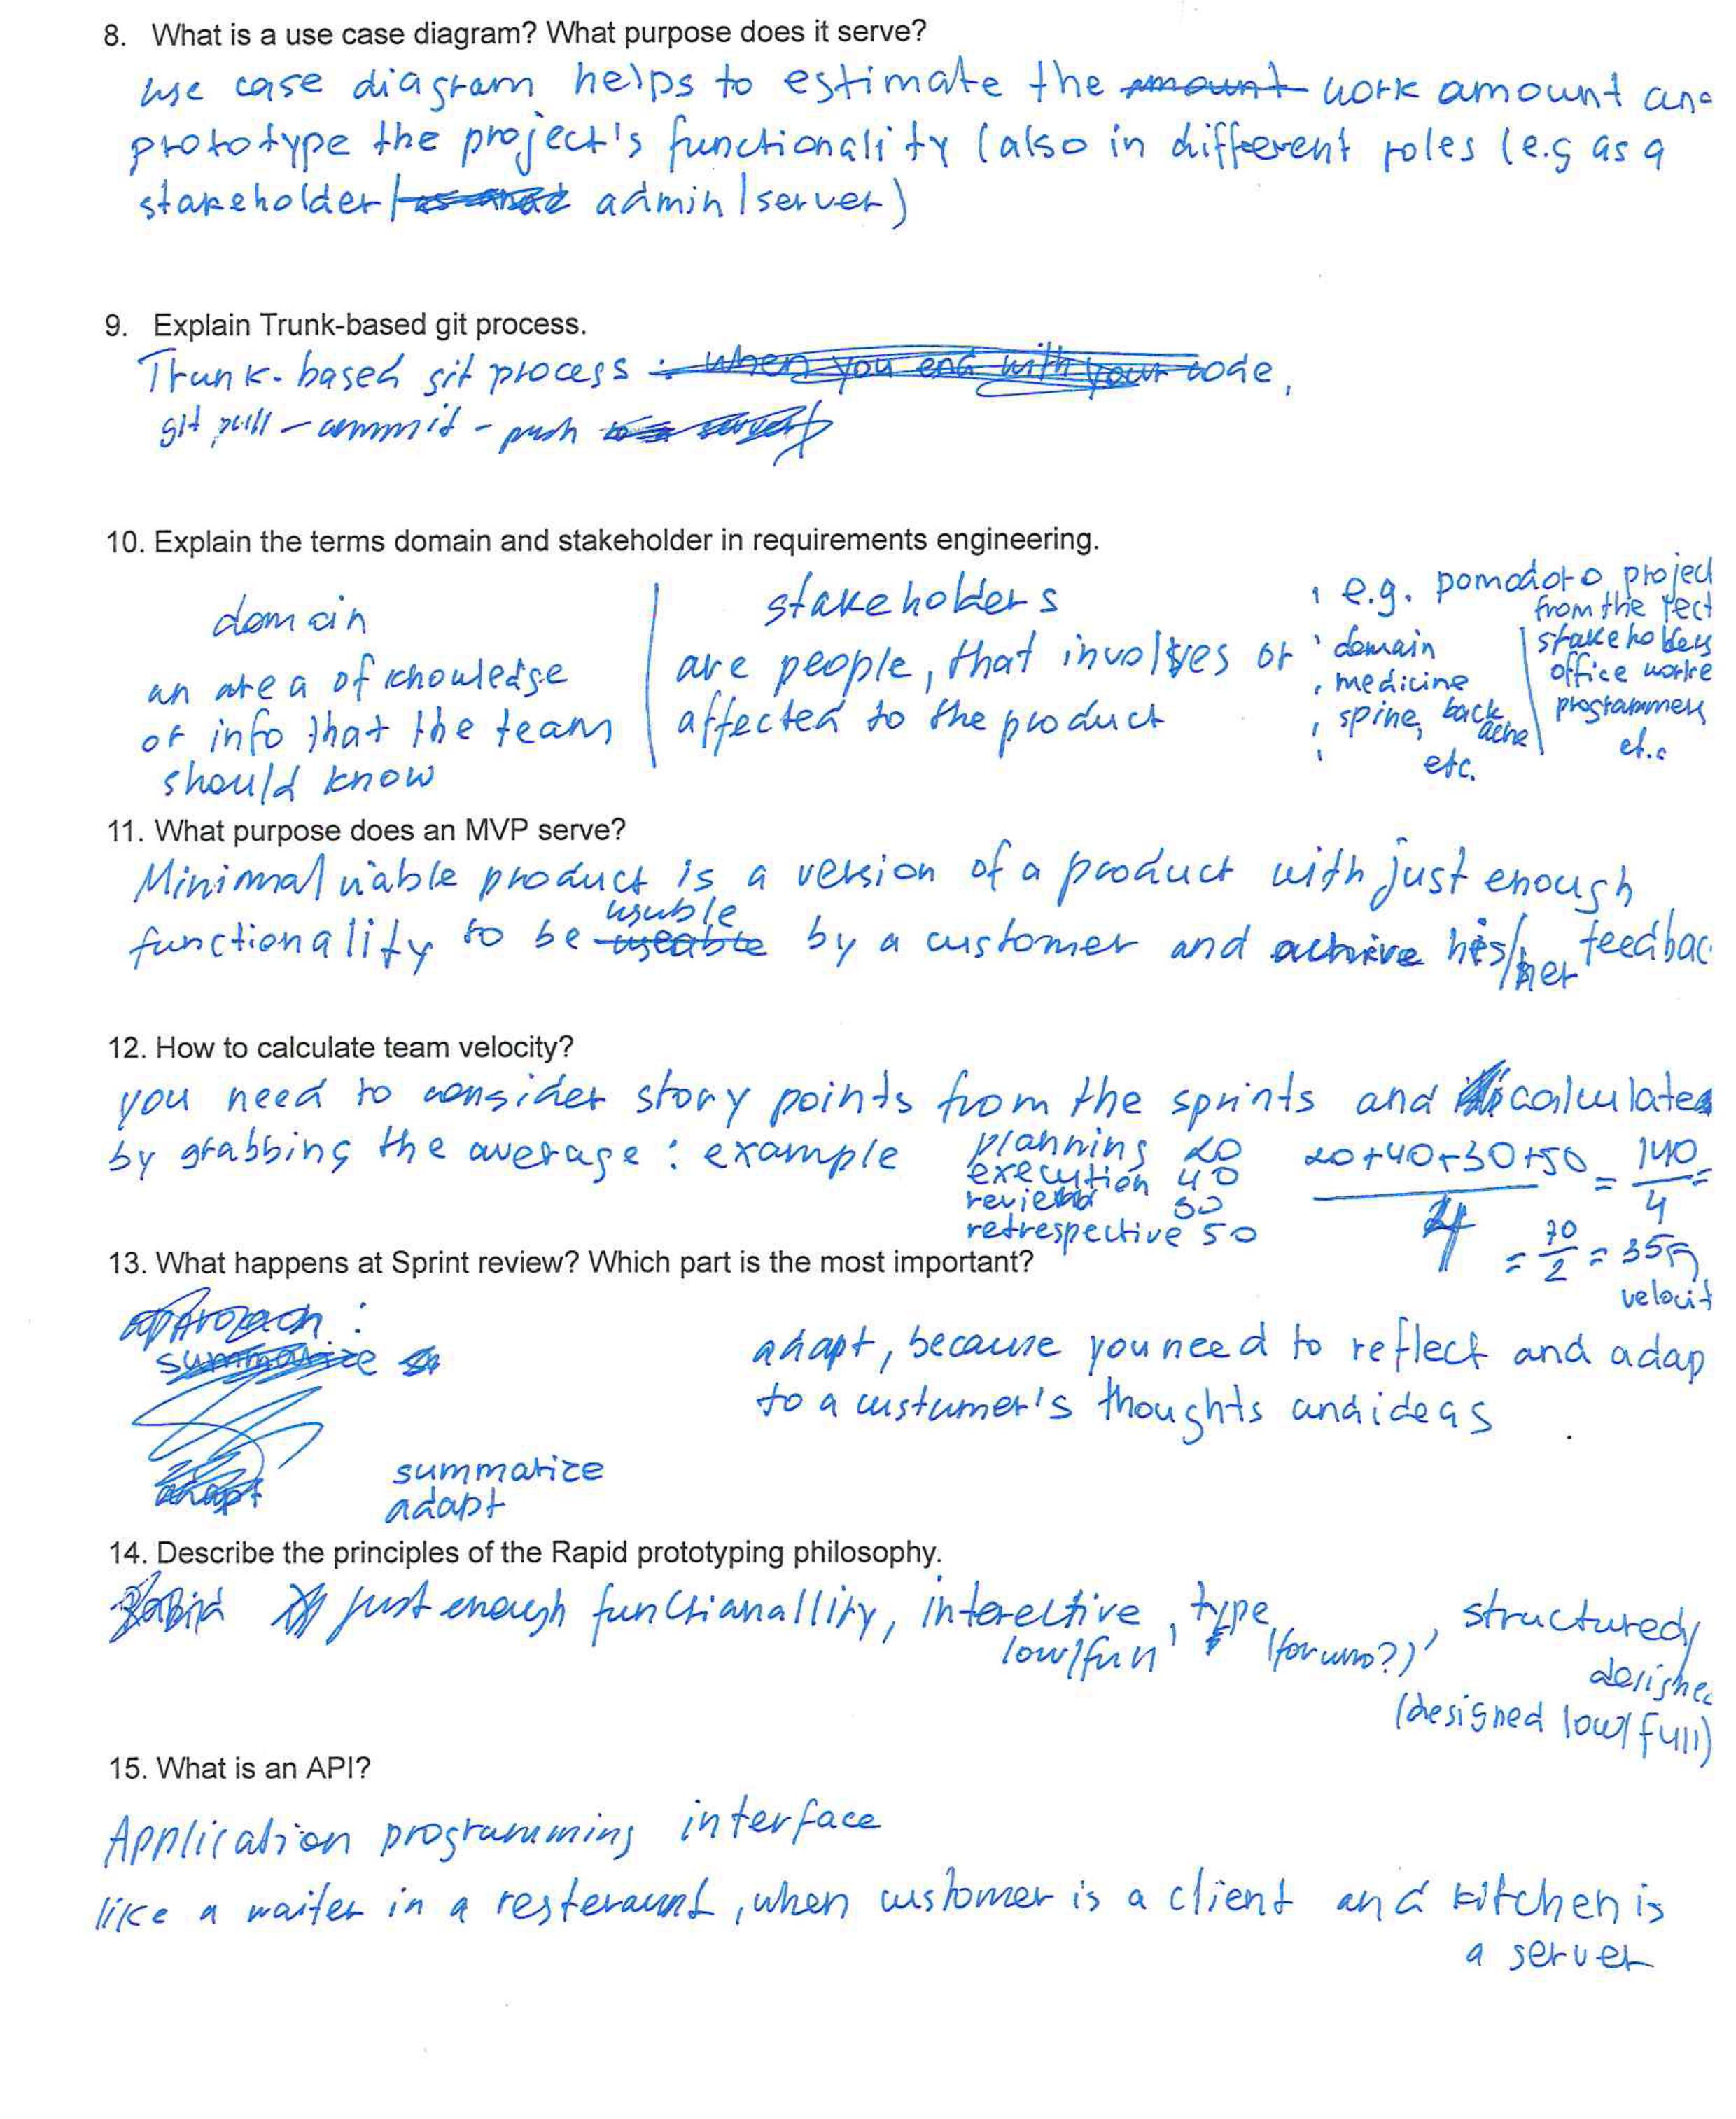 8. What is a use case diagram? What purpose does it serve?
use case diagram helps to estimate the amount work amount an
prototype the project's functionality (also in different roles (e.g as a
stakeholder/ admin/server)
9. Explain Trunk-based git process.
Trunk-based git process : when you end with your code,
git pull - commit - push to
10. Explain the terms domain and stakeholder in requirements engineering.
domain
an area of knowledge
or info that the team
should know
stakeholders
are people, that involves or
affected to the product
e.g. pomodoro project
from the lect
domain
medicine
spine, back
ache
etc.
stakeholders
office worke
programmers
et.c
11. What purpose does an MVP serve?
Minimal viable product is a version of a product with just enough
usuble
functionality to be useable by a customer and achive his/her feedbac
12. How to calculate team velocity?
you need to consider story points from the sprints and calculated
by grabbing the average : example
planning 20
execution 40
review 30
retrespective 50
20+40+30+50 / 4 = 140 / 4 =
= 70 / 2 = 35
velocit
13. What happens at Sprint review? Which part is the most important?
approach :
summarize
adapt
summarize
adapt
adapt, because you need to reflect and adap
to a custumer's thoughts and ideas
14. Describe the principles of the Rapid prototyping philosophy.
Rapid just enough functianallity, interective, type, structured/
low/full (for who?)
(designed low/full)
15. What is an API?
Application programming interface
like a waiter in a resteraunt, when customer is a client and kitchen is
a server